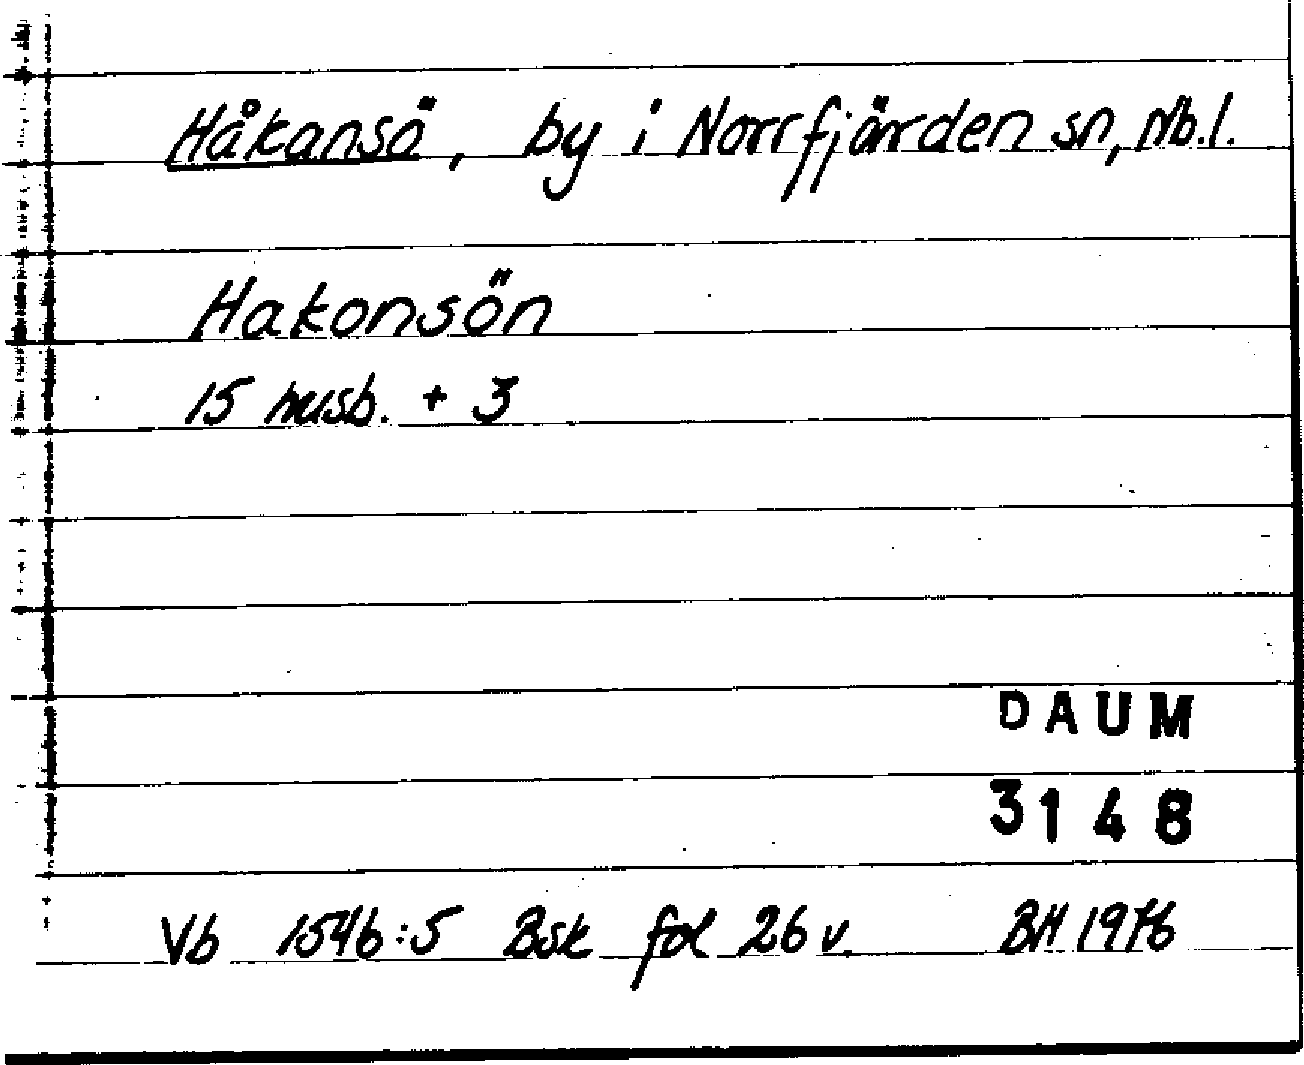 Håkansö, by i Norrfjärden sn, Nb.l.
Hakonsön
15 husb. + 3
DAUM
3148
Vb 1546:5 Bsk fol 26 v. BH 1976